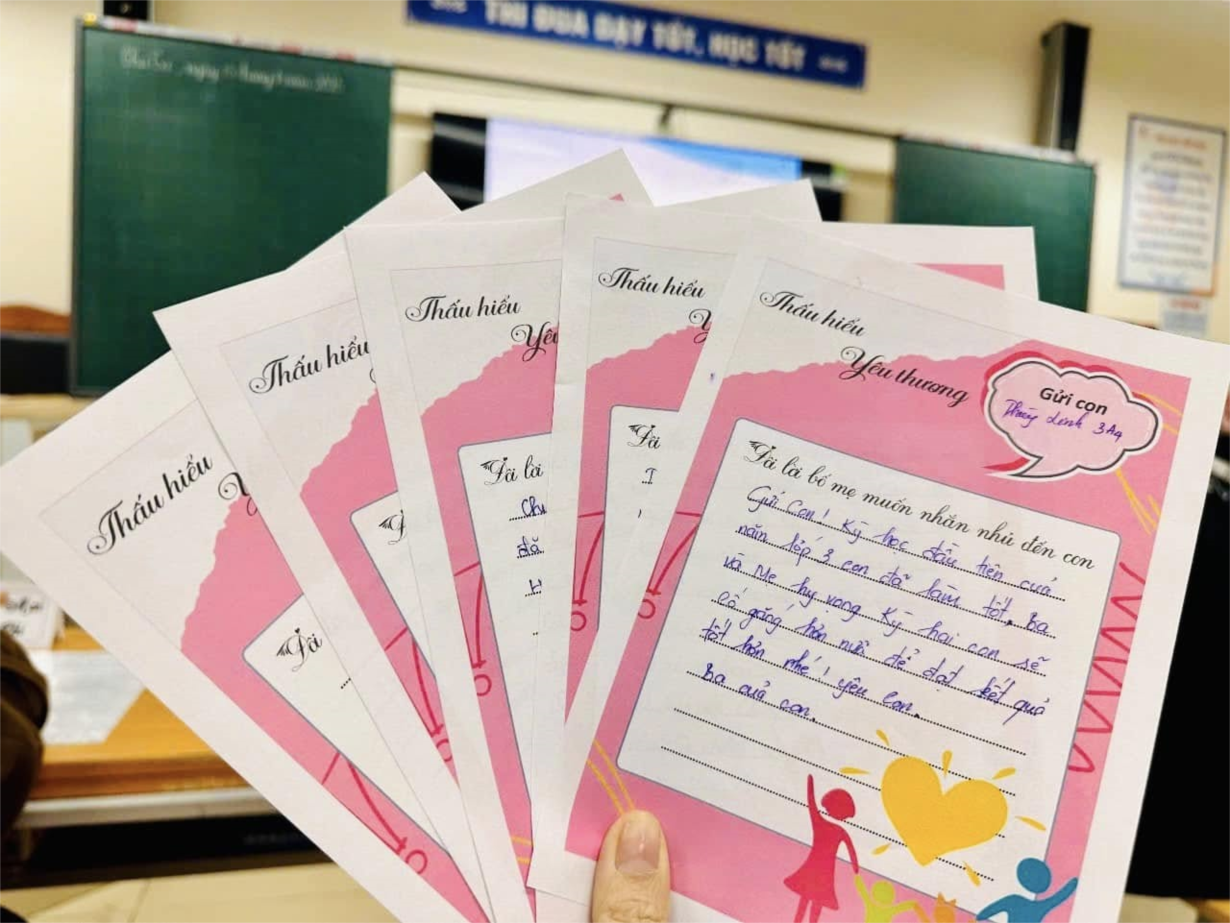 THI ĐUA DẠY TỐT, HỌC TỐT
Thấu hiểu
Thấu hiểu
Thấu hiểu
Yêu
Đôi lời
Chu
đã
H
Thấu hiểu
Y
Đôi
I
Thấu hiểu
Yêu thương
Gửi con
Linh 3A4
Đôi lời bố mẹ muốn nhắn nhủ đến con
Gửi Con! Kỳ học đầu tiên của
năm lớp 3 con đã làm tốt, Ba
và Mẹ hy vọng Kỳ hai con sẽ
cố gắng hơn nữa để đạt kết quả
tốt hơn nhé, yêu con.
Ba của con.